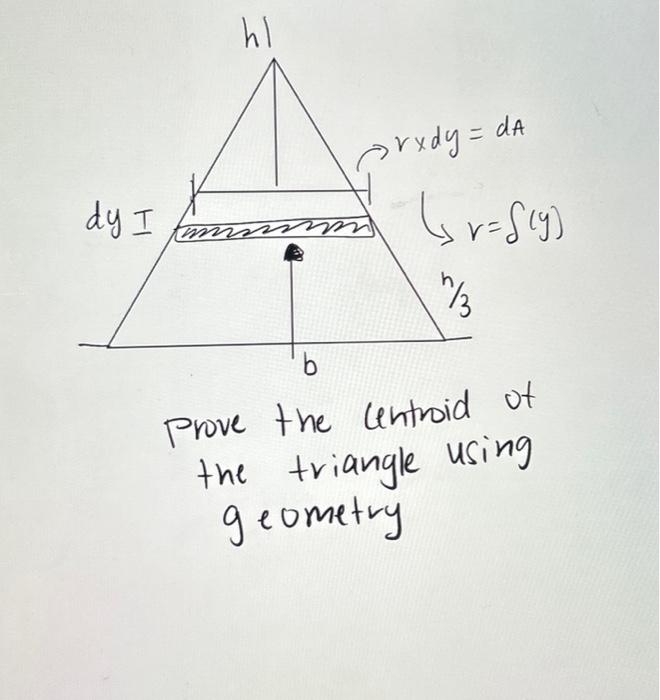 h|
r x dy = dA
dy I
r = f(y)
h/3
b
Prove the centroid of
the triangle using
geometry